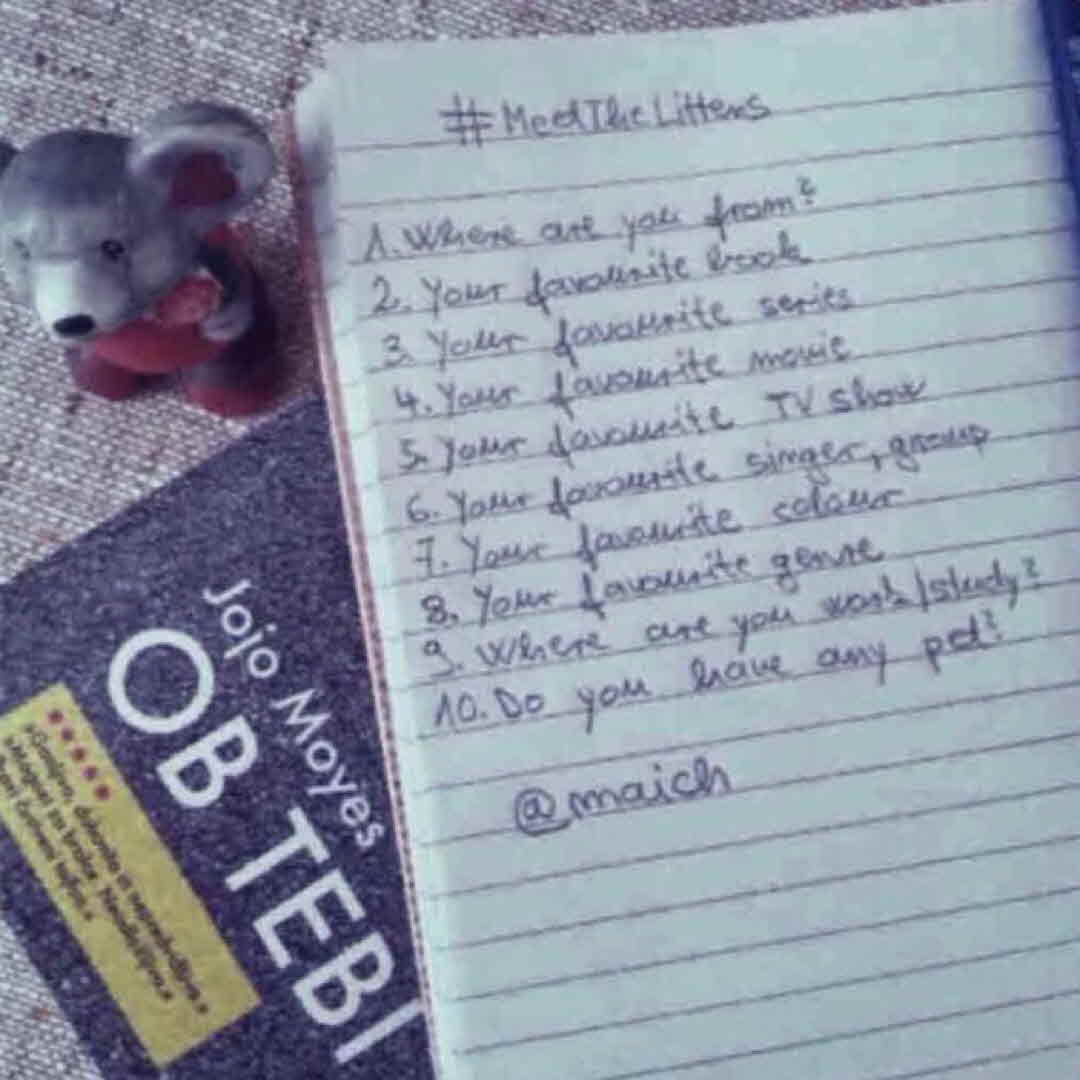 #MeetTheLitters
1. Where are you from?
2. Your favourite book
3. Your favourite series
4. Your favourite movie
5. Your favourite TV show
6. Your favourite singer, group
7. Your favourite colour
8. Your favourite genre
9. Where are you work/study?
10. Do you have any pet?
@maich
Jojo Moyes
OB TEBI